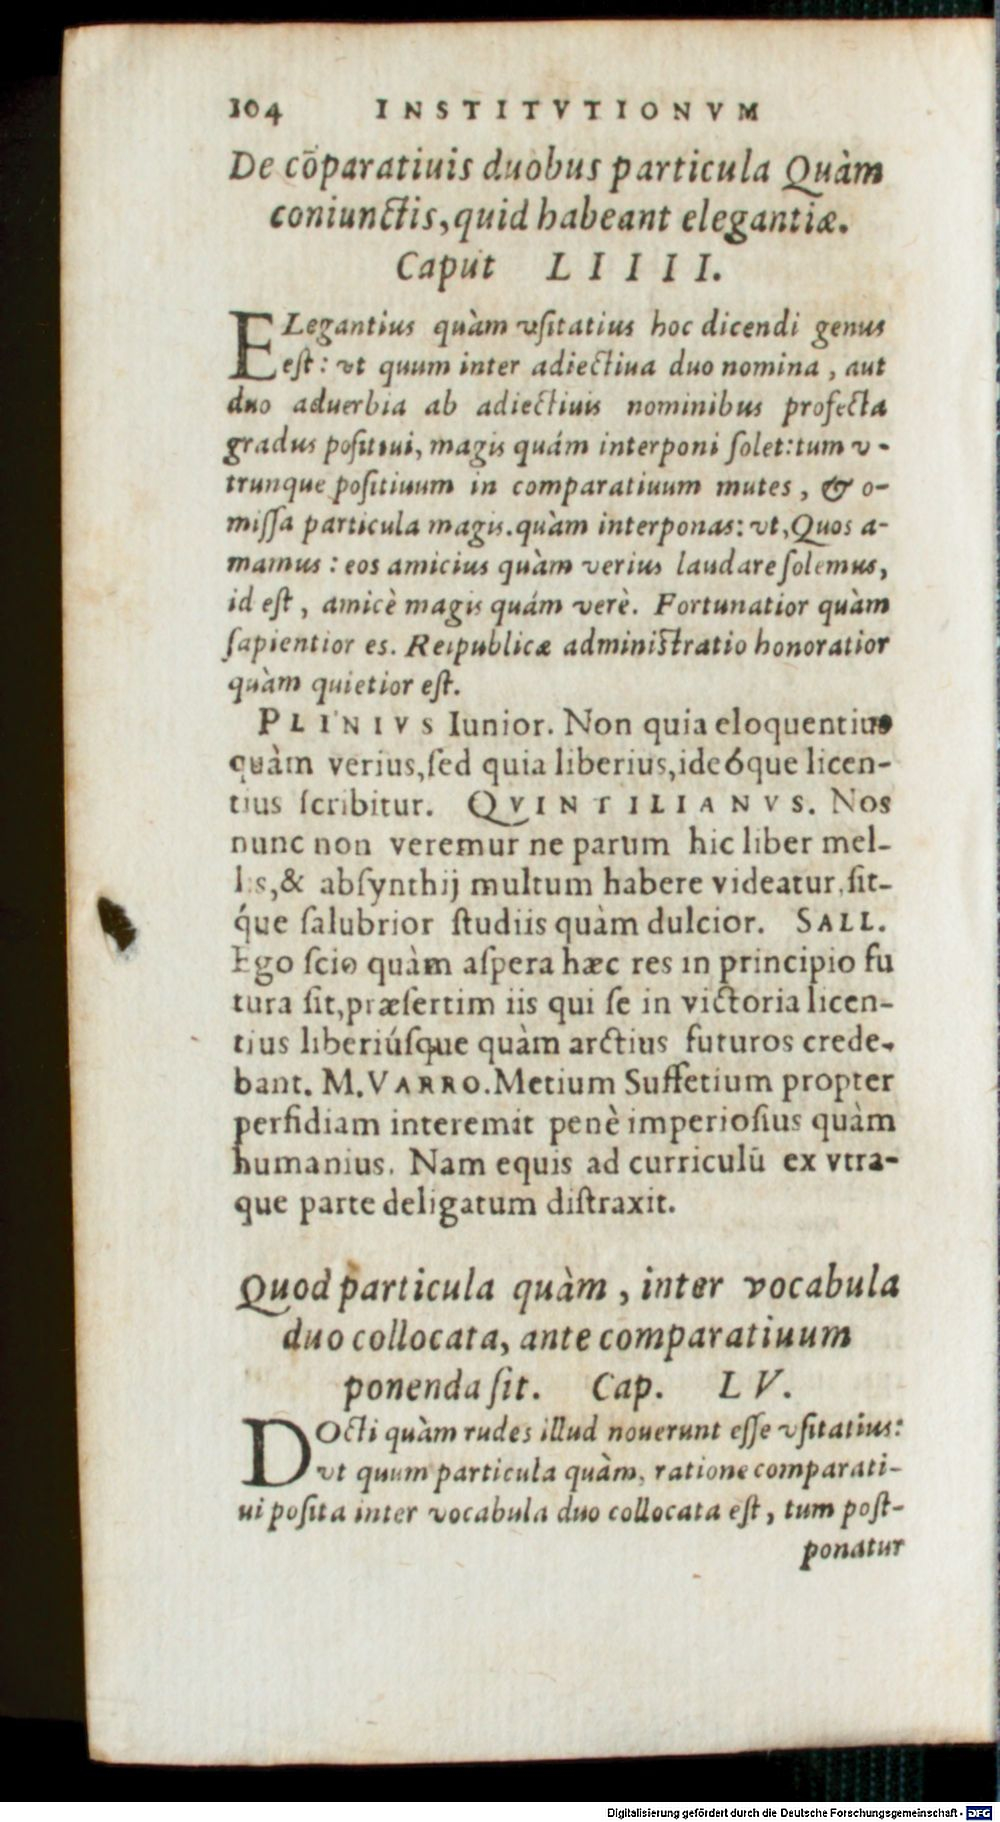 104 INSTITVTIONVM
De cōparatiuis duobus particula Quàm
coniunctis, quid habeant elegantiæ.
Caput LIIIII.
ELegantius quàm vſitatius hoc dicendi genus
eſt: vt quum inter adiectiua duo nomina, aut
duo aduerbia ab adiectiuis nominibus profecta
gradus poſitiui, magis quám interponi ſolet: tum v-
trunque poſitiuum in comparatiuum mutes, & o-
miſſa particula magis. quàm interponas: vt, Quos a-
mamus: eos amicius quàm verius laudare ſolemus,
id eſt, amicè magis quám verè. Fortunatior quàm
ſapientior es. Reipublicæ adminiſtratio honoratior
quàm quietior eſt.
PLINIVS Iunior. Non quia eloquentius
quàm verius, ſed quia liberius, ideóque licen-
tius ſcribitur. QVINTILIANVS. Nos
nunc non veremur ne parum hic liber mel-
lis, & abſynthij multum habere videatur, ſit-
q́ue ſalubrior ſtudiis quàm dulcior. SALL.
Ego ſcio quàm aſpera hæc res in principio fu
tura ſit, præſertim iis qui ſe in victoria licen-
tius liberiúſque quàm arctius futuros crede-
bant. M. VARRO. Metium Suffetium propter
perfidiam interemit penè imperioſius quàm
humanius. Nam equis ad curriculū ex vtra-
que parte deligatum diſtraxit.
Quod particula quàm, inter vocabula
duo collocata, ante comparatiuum
ponenda ſit. Cap. LV.
DOcti quàm rudes illud nouerunt eſſe vſitatius:
vt quum particula quàm, ratione comparati-
ui poſita inter vocabula duo collocata eſt, tum poſt-
ponatur
Digitalisierung gefördert durch die Deutsche Forschungsgemeinschaft - DFG